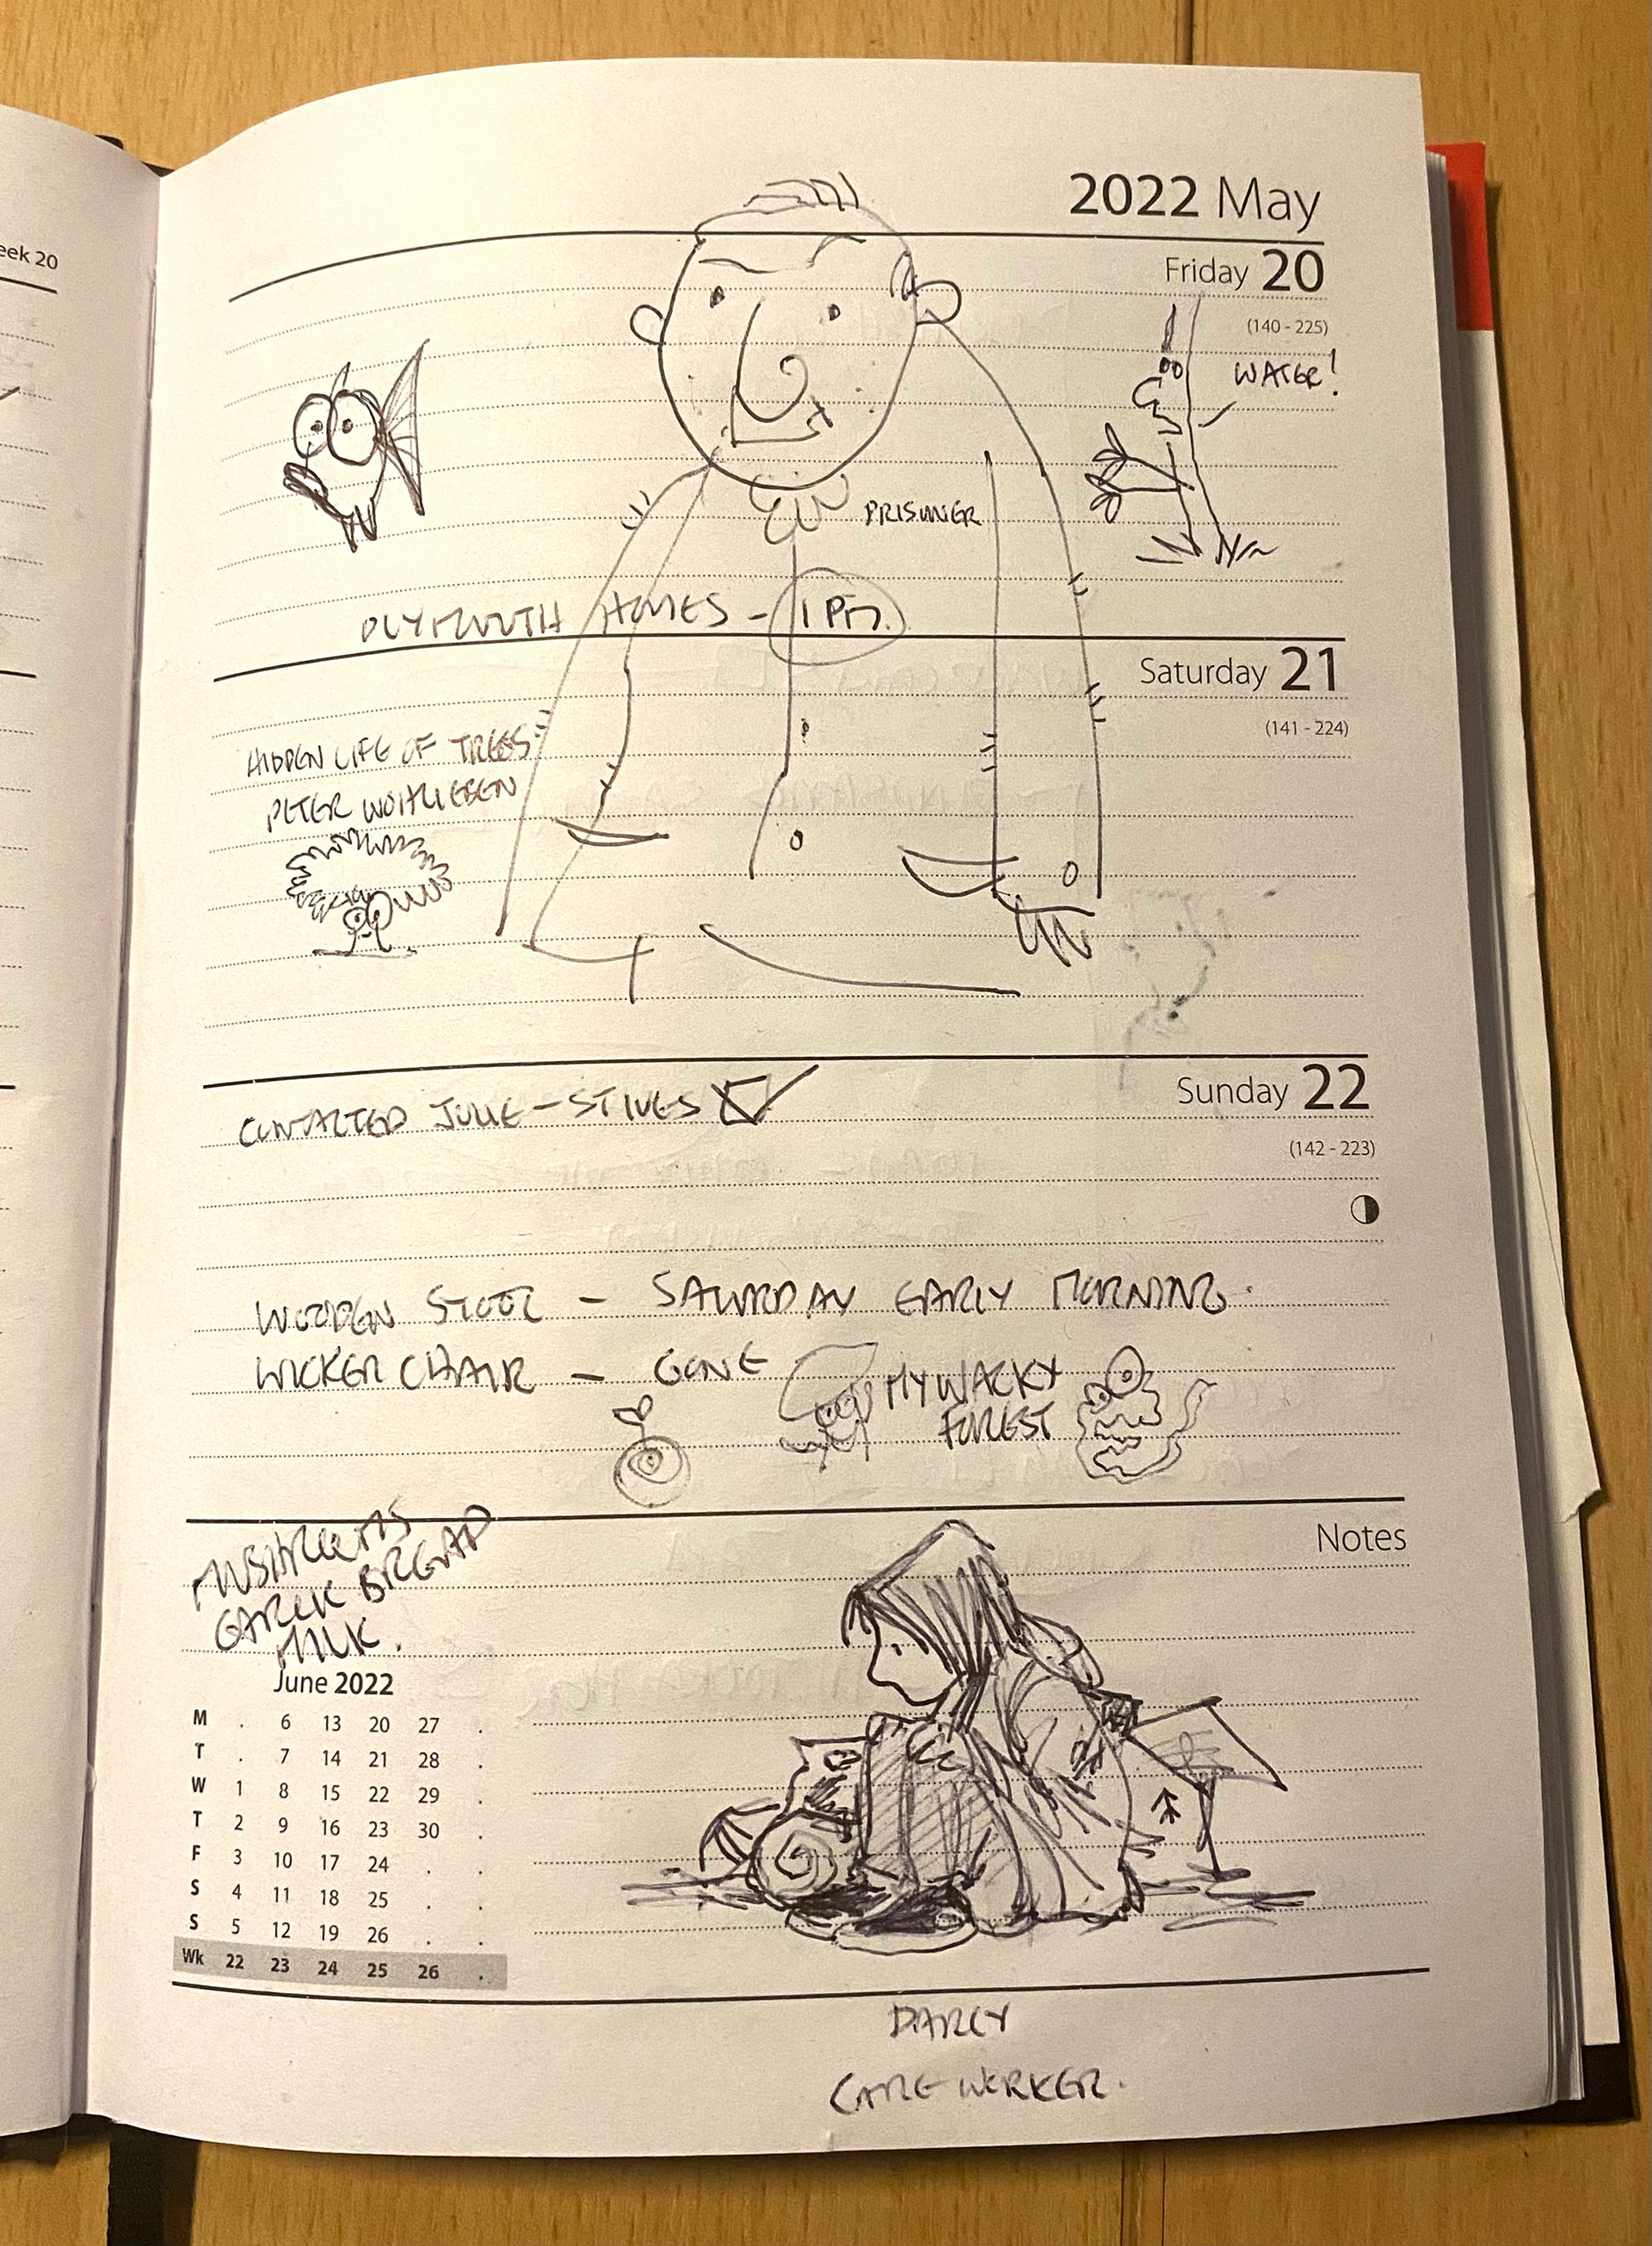 eek 20
2022 May
Friday 20
(140 - 225)
WATER!
PRISONER
PLYMOUTH HOMES - 1 PM.
Saturday 21
(141 - 224)
HIDDEN LIFE OF TREES:
PETER WOHLLEBEN
Sunday 22
CONTACTED JULIE - ST IVES
(142 - 223)
WOODEN STOOL - SATURDAY EARLY MORNING.
WICKER CHAIR - GONE
MY WACKY
FOREST
Notes
MUSHROOMS
GARLIC BREAD
MILK.
June 2022
M . 6 13 20 27 .
T . 7 14 21 28 .
W 1 8 15 22 29 .
T 2 9 16 23 30 .
F 3 10 17 24 . .
S 4 11 18 25 . .
S 5 12 19 26 . .
Wk 22 23 24 25 26 .
DARCY
CARE WORKER.